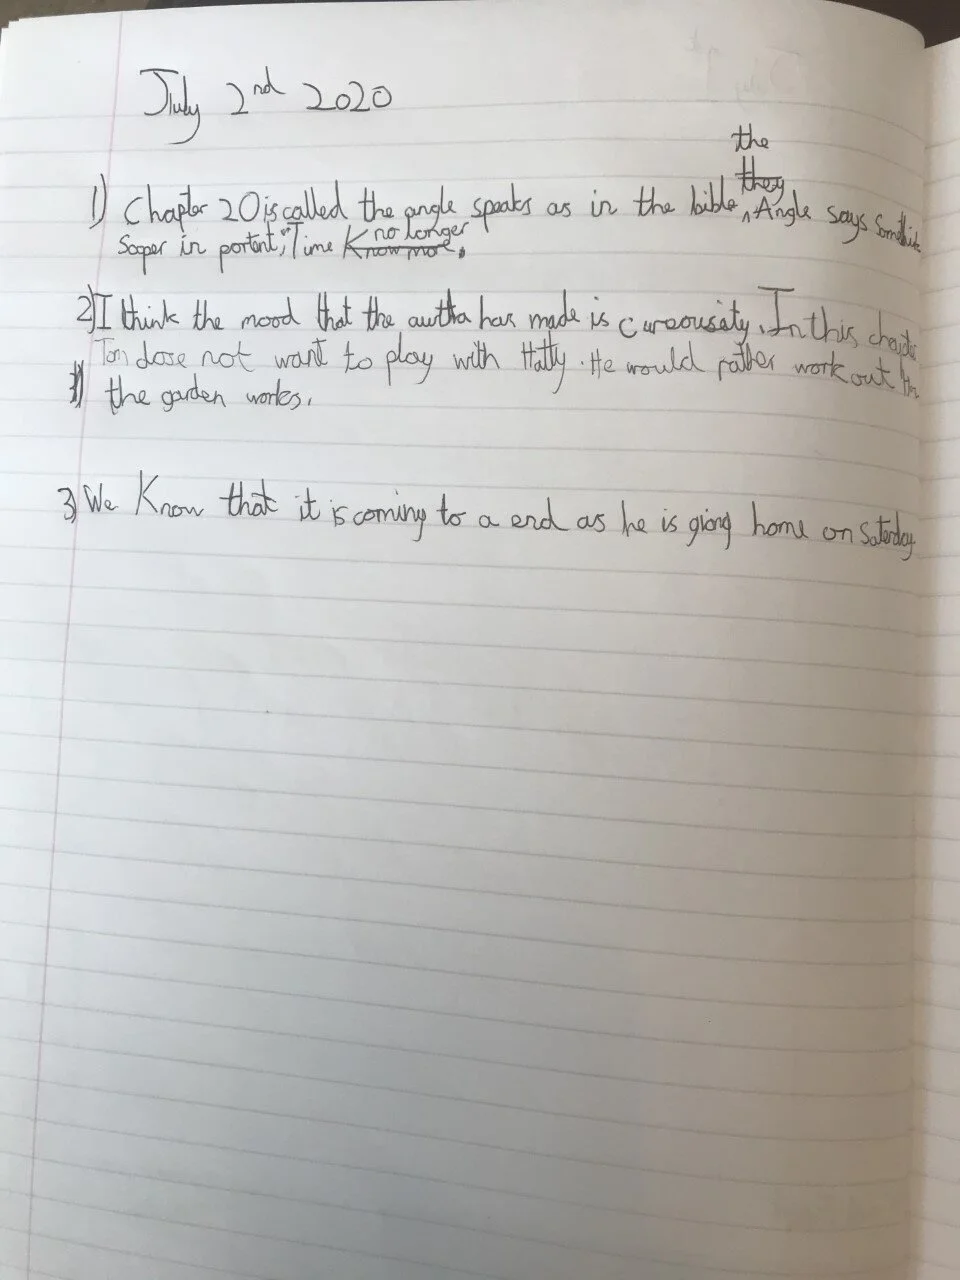 July 2nd 2020
the
1) Chapter 20 is called the angle speaks as in the bible, they Angle says
Sooper in portent, "Time Know more no longer.
2) I think the mood that the awtha has made is cureousaty. In this
Tom dose not want to play with Hatty. He would rather work out
the garden works.
3) We Know that it is coming to a end as he is giong home on Saterday